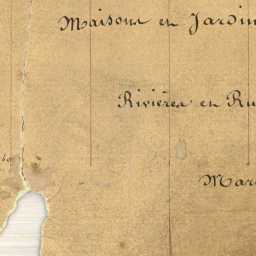 Maisons en Jardin
Rivières en Ru
Mar